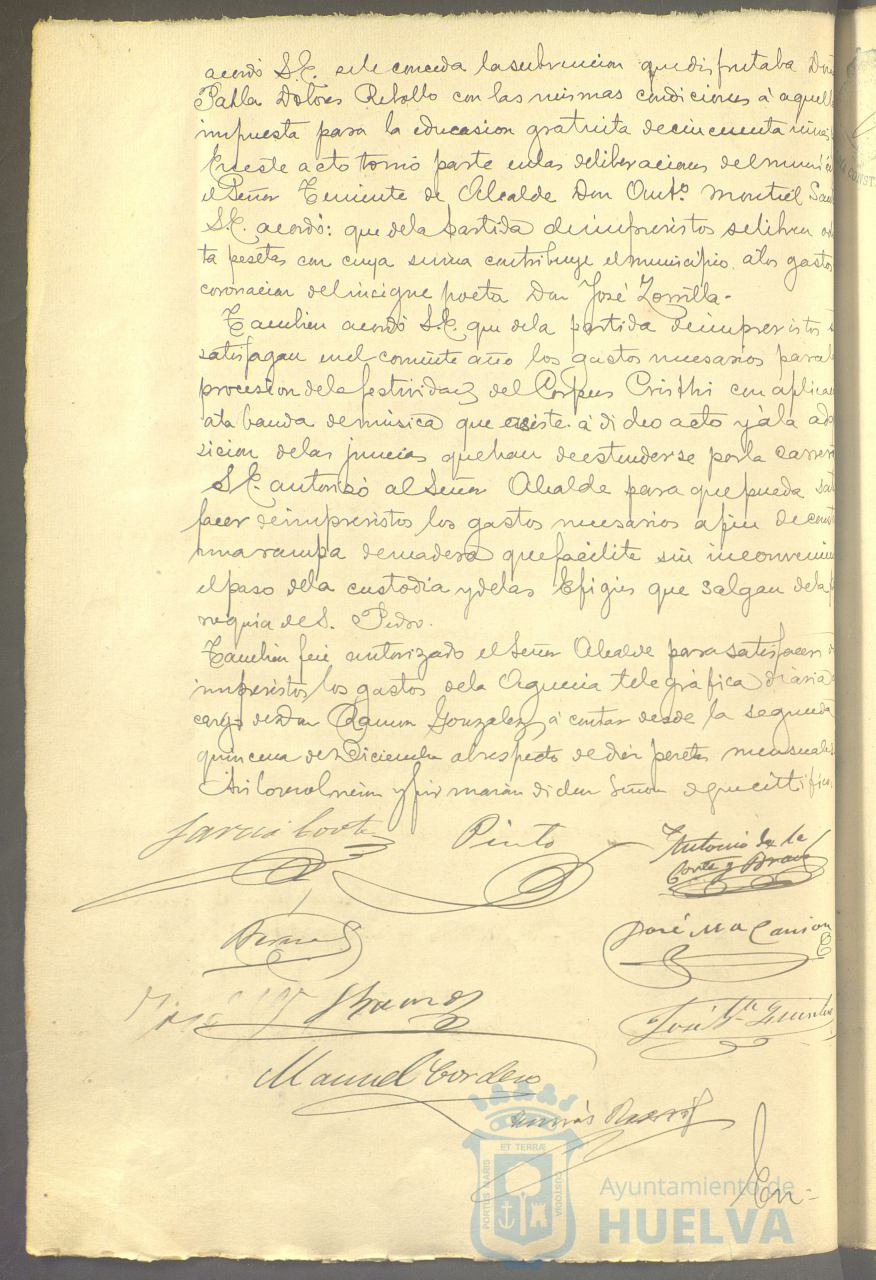 acordó S.E. se le conceda la subvencion que disfrutaba Doñ
Dolores Rebollo con las mismas condiciones á aquella
impuesta para la educasion gratuita de cincuenta niñas
En este acto tomó parte en las deliberaciones del munici
el Señor Teniente de Alcalde Don Ant.º Montiel San
S.E. acordó: que de la partida de imprevistos se libren
ta pesetas con cuya suma contribuye el municipio a los gastos
coronacion del insigne poeta Don José Zorrilla-
Tambien acordó S.E. que de la partida de imprevistos s
satisfagan en el corriente año los gastos necesarios para l
procesion de la festividad del Corpus Cristhi con aplicac
a la banda de música que asiste á dicho acto y á la ad
sicion de las juncias que han de estenderse por la carrera
S.E. autorizó al Señor Alcalde para que pueda sat
facer de imprevistos los gastos necesarios a fin de const
una rampa de madera que facilite sin inconvenien
el paso de la custodia y de las Efigies que salgan de la p
roquia de S. Pedro.
Tambien fué autorizado el Señor Alcalde para satisfacer d
imprevistos los gastos de la Agencia telegráfica diaria
cargo de Don Ramon Gonzalez, á contar desde la segunda
quincena de Diciembre al respecto de diez pesetas mensuales
Asi lo resolvieron y firmarán dichos Señores de que certifico.
Garcia Cortes Pinto Antonio de la
Corte y Bravo
José Ma Cansino
José Mª
Manuel Cordero
En-
PORTUS MARIS ET TERRÆ CUSTODIA
Ayuntamiento de
HUELVA